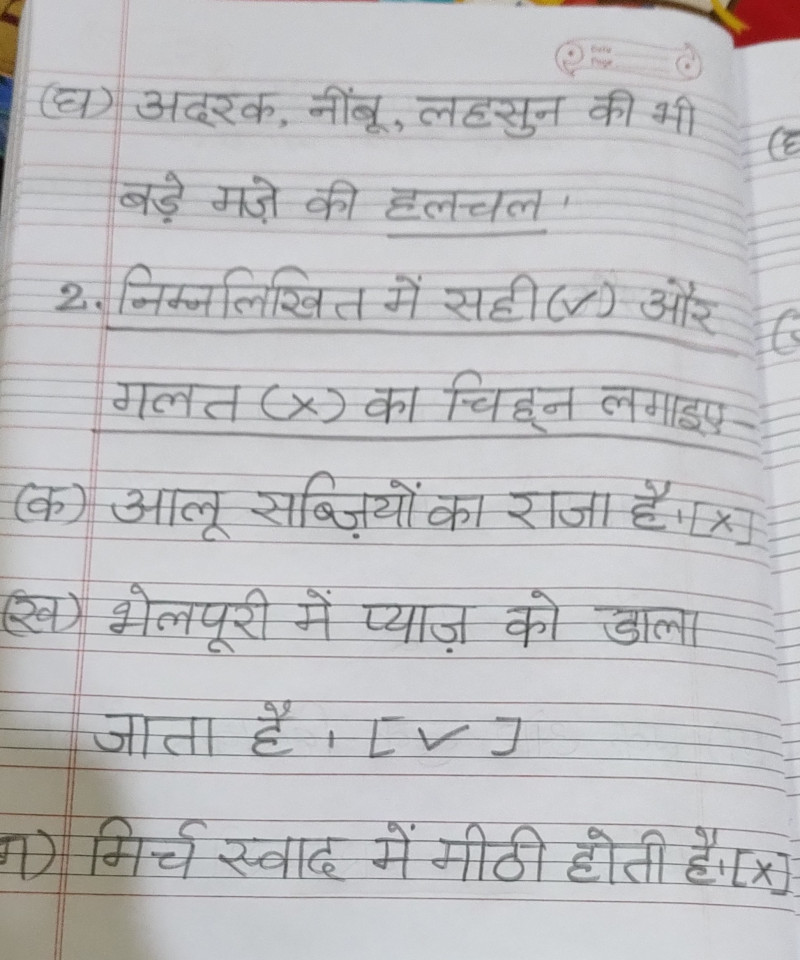 Date
Page
(घ) अदरक, नींबू, लहसुन की भी
बड़े मज़े की हलचल।
2. निम्नलिखित में सही (✓) और
गलत (x) का चिह्न लगाइए-
(क) आलू सब्ज़ियों का राजा है। [x]
(ख) भेलपूरी में प्याज़ को डाला
जाता है। [✓]
ग) मिर्च स्वाद में मीठी होती है। [x]